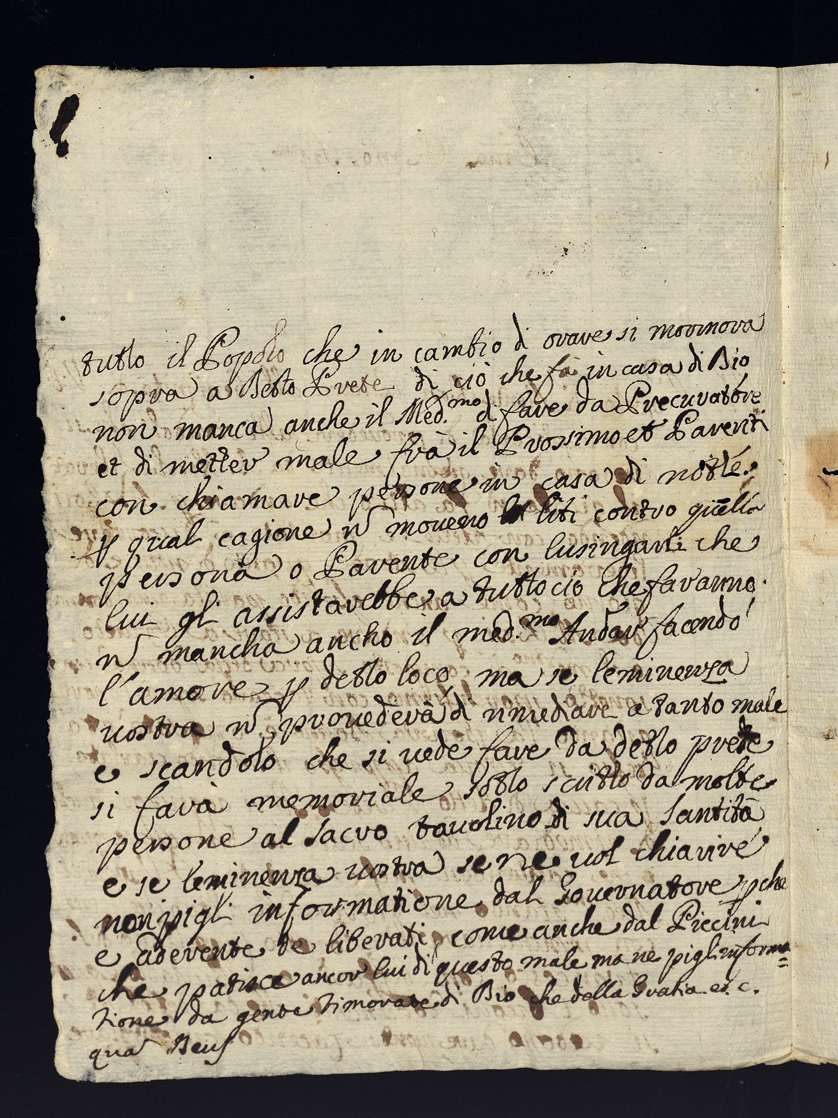 tutto il Popolo che in cambio di orare si mormora
sopra a detto Prete di ciò che fa in casa di Dio
non manca anche il Med.mo di fare da Precuratore
et di metter male frà il Prossimo et Parenti
con chiamare persone in casa di notte.
p qual cagione n moveno liti contro quella
persona o Parente con lusingarli che
lui gli assistarebbe a tutto cio che faranno.
n mancha ancho il med.mo Andar facendo
l'amore p detto loco, ma se leminenza
vostra n provederà di rimediare a tanto male
e scandolo che si vede fare da detto prete
si farà memoriale sotto scritto da molte
persone al sacro tavolino di sua Santità
e se leminenza vostra se ne vol chiarire
non pigli informatione dal Governatore p che
e aderente de liberati, come anche dal Piccini
che patisce ancor lui di questo male ma ne pigli informa=
tione da gente timorate di Dio che della Gratia. et. c.
qua Deus